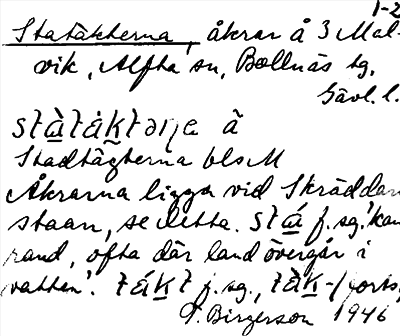 1-2
Statäkterna, åkrar å 3 Mal-
vik, Alfta sn, Bollnäs tg,
Gävl. l.
Stadtägterna bls M
Åkrarna ligga vid Skräddar
staan, se detta. f. sg. 'kan
rand, ofta där land övergår i
vatten'. f. sg., (forts.
Birgerson 1946